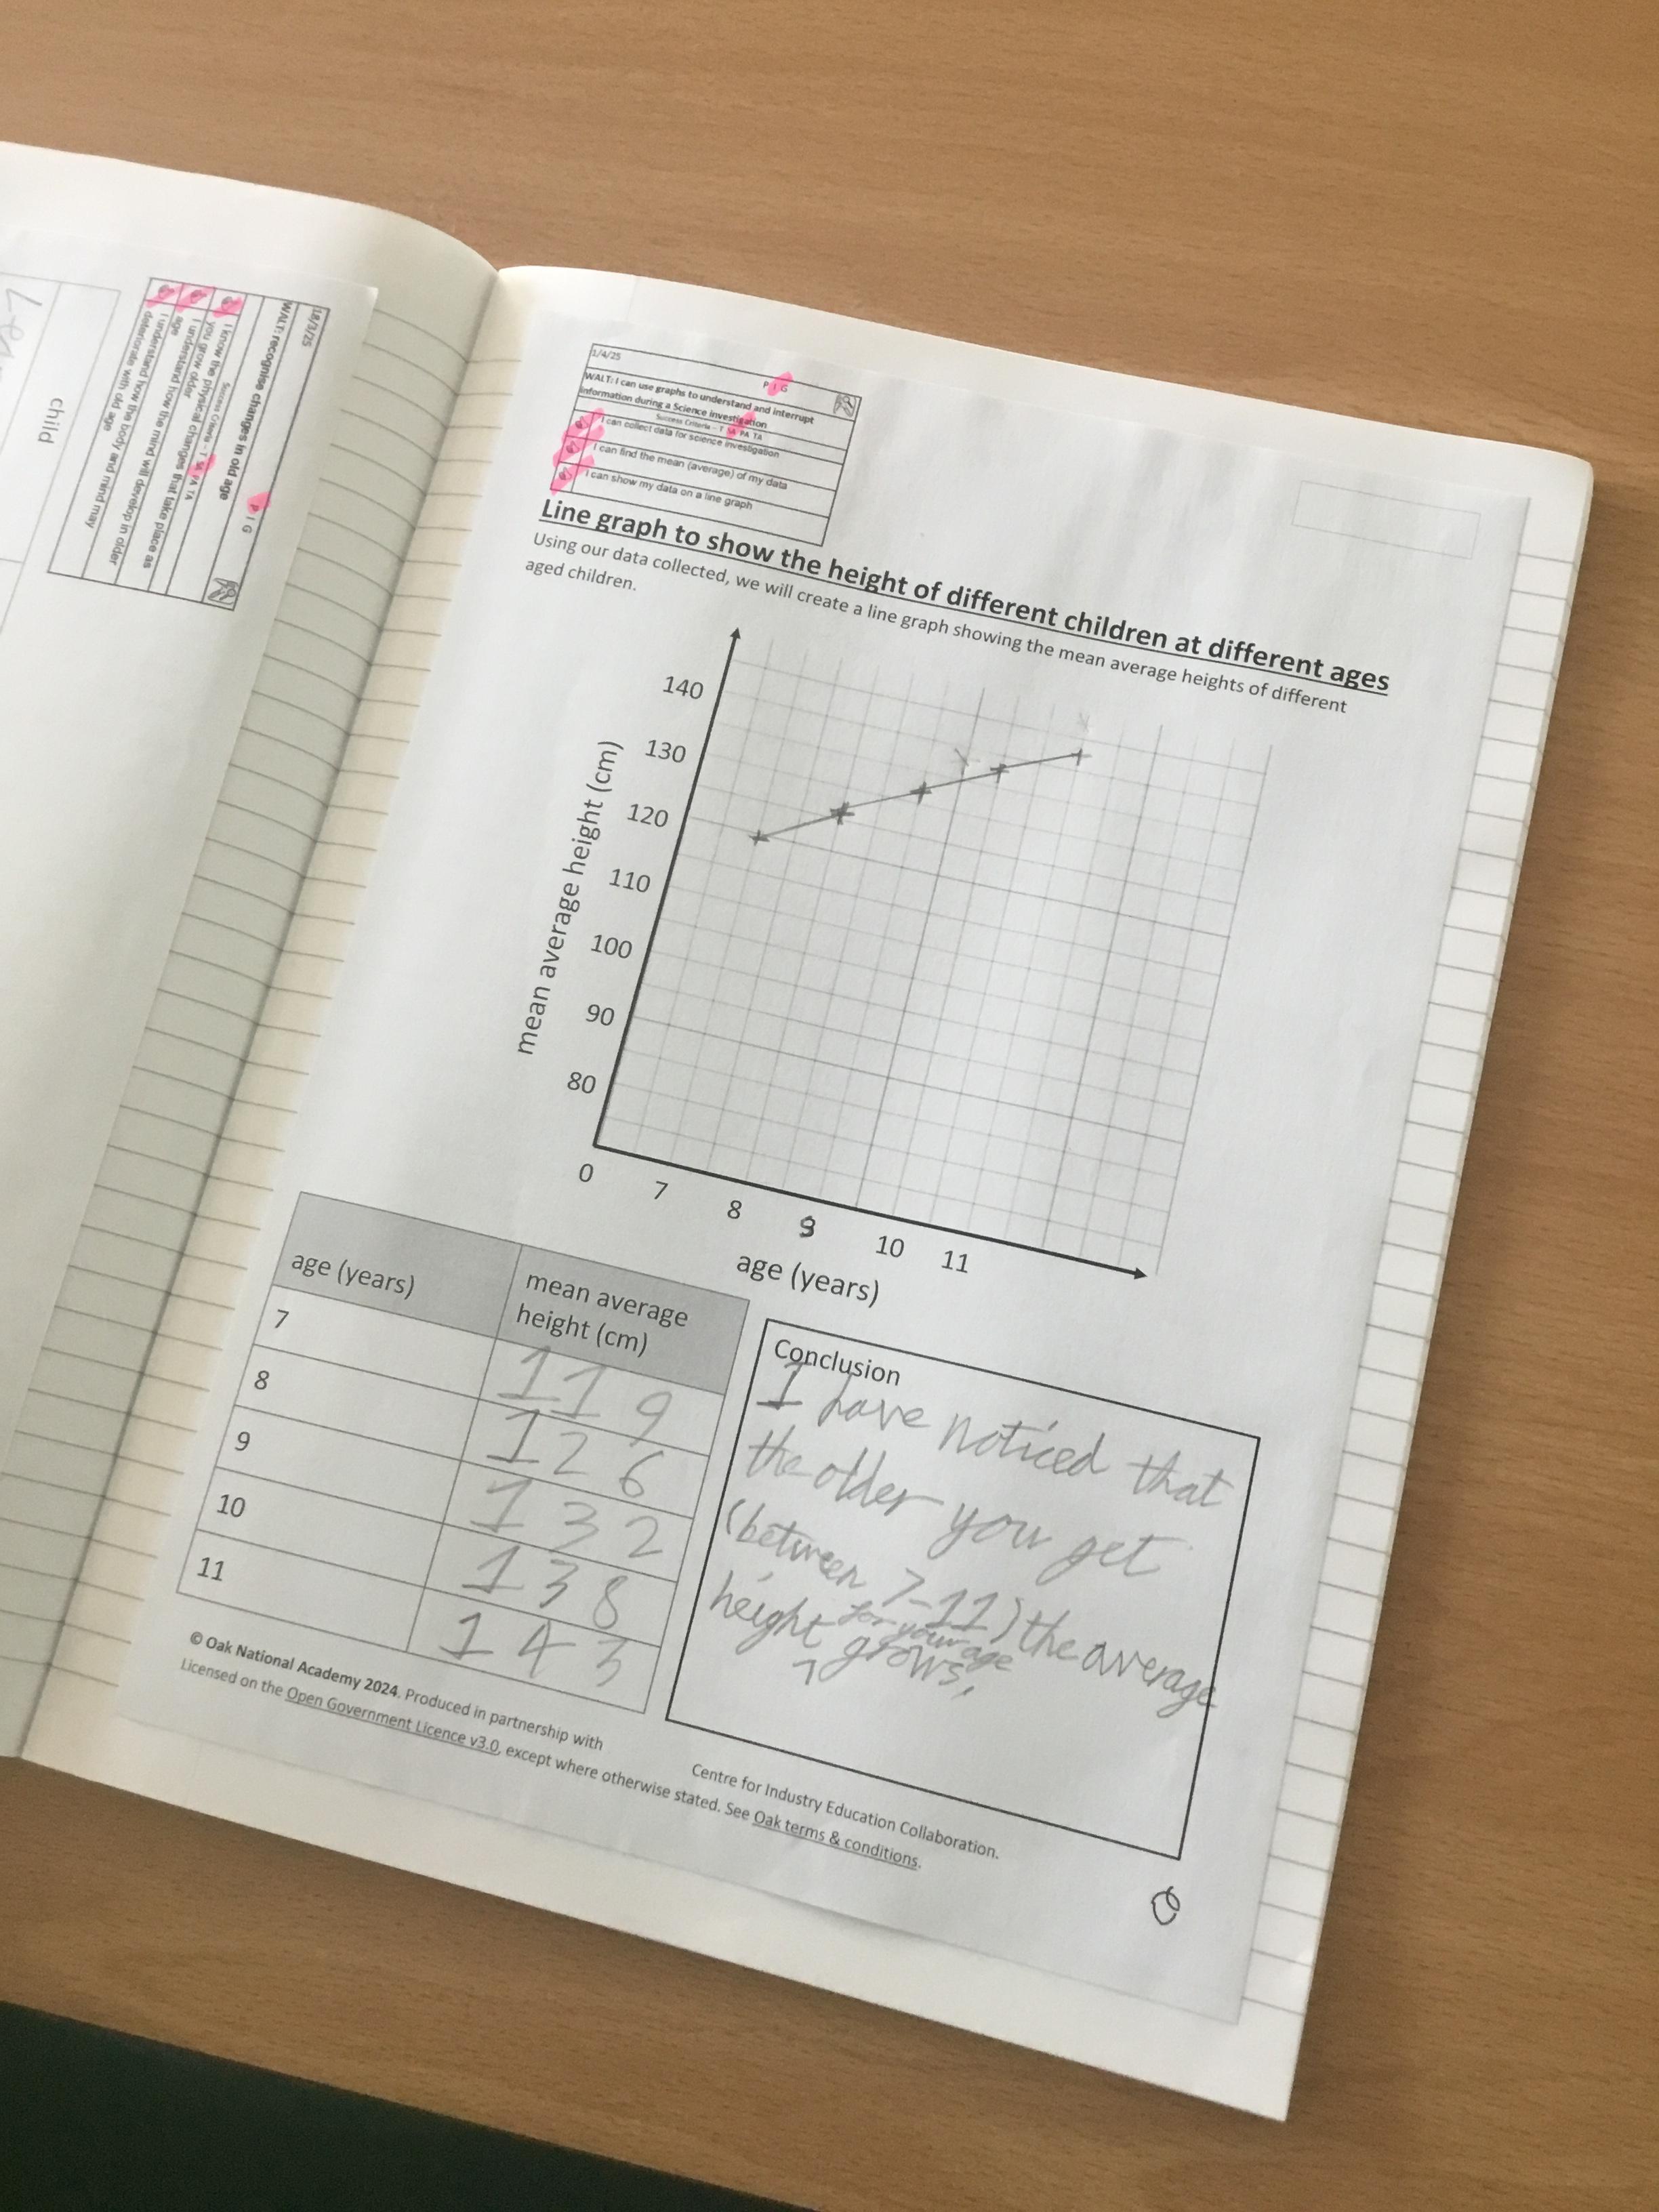 18/3/25
P I G
WALT: recognise changes in old age
Success Criteria - T SA PA TA
I know the physical changes that take place as
you grow older
I understand how the mind will develop in older
age
I understand how the body and mind may
deteriorate with old age
child
1/4/25
P I G
WALT: I can use graphs to understand and interrupt
information during a Science investigation
Success Criteria - T SA PA TA
I can collect data for science investigation
I can find the mean (average) of my data
I can show my data on a line graph
Line graph to show the height of different children at different ages
Using our data collected, we will create a line graph showing the mean average heights of different
aged children.
mean average height (cm)
140
130
120
110
100
90
80
0 7 8 9 10 11
age (years)
age (years) mean average
height (cm)
7 119
8 126
9 132
10 138
11 143
Conclusion
I have noticed that
the older you get
(between 7-11) the average
height for your age grows.
© Oak National Academy 2024. Produced in partnership with Centre for Industry Education Collaboration.
Licensed on the Open Government Licence v3.0, except where otherwise stated. See Oak terms & conditions.